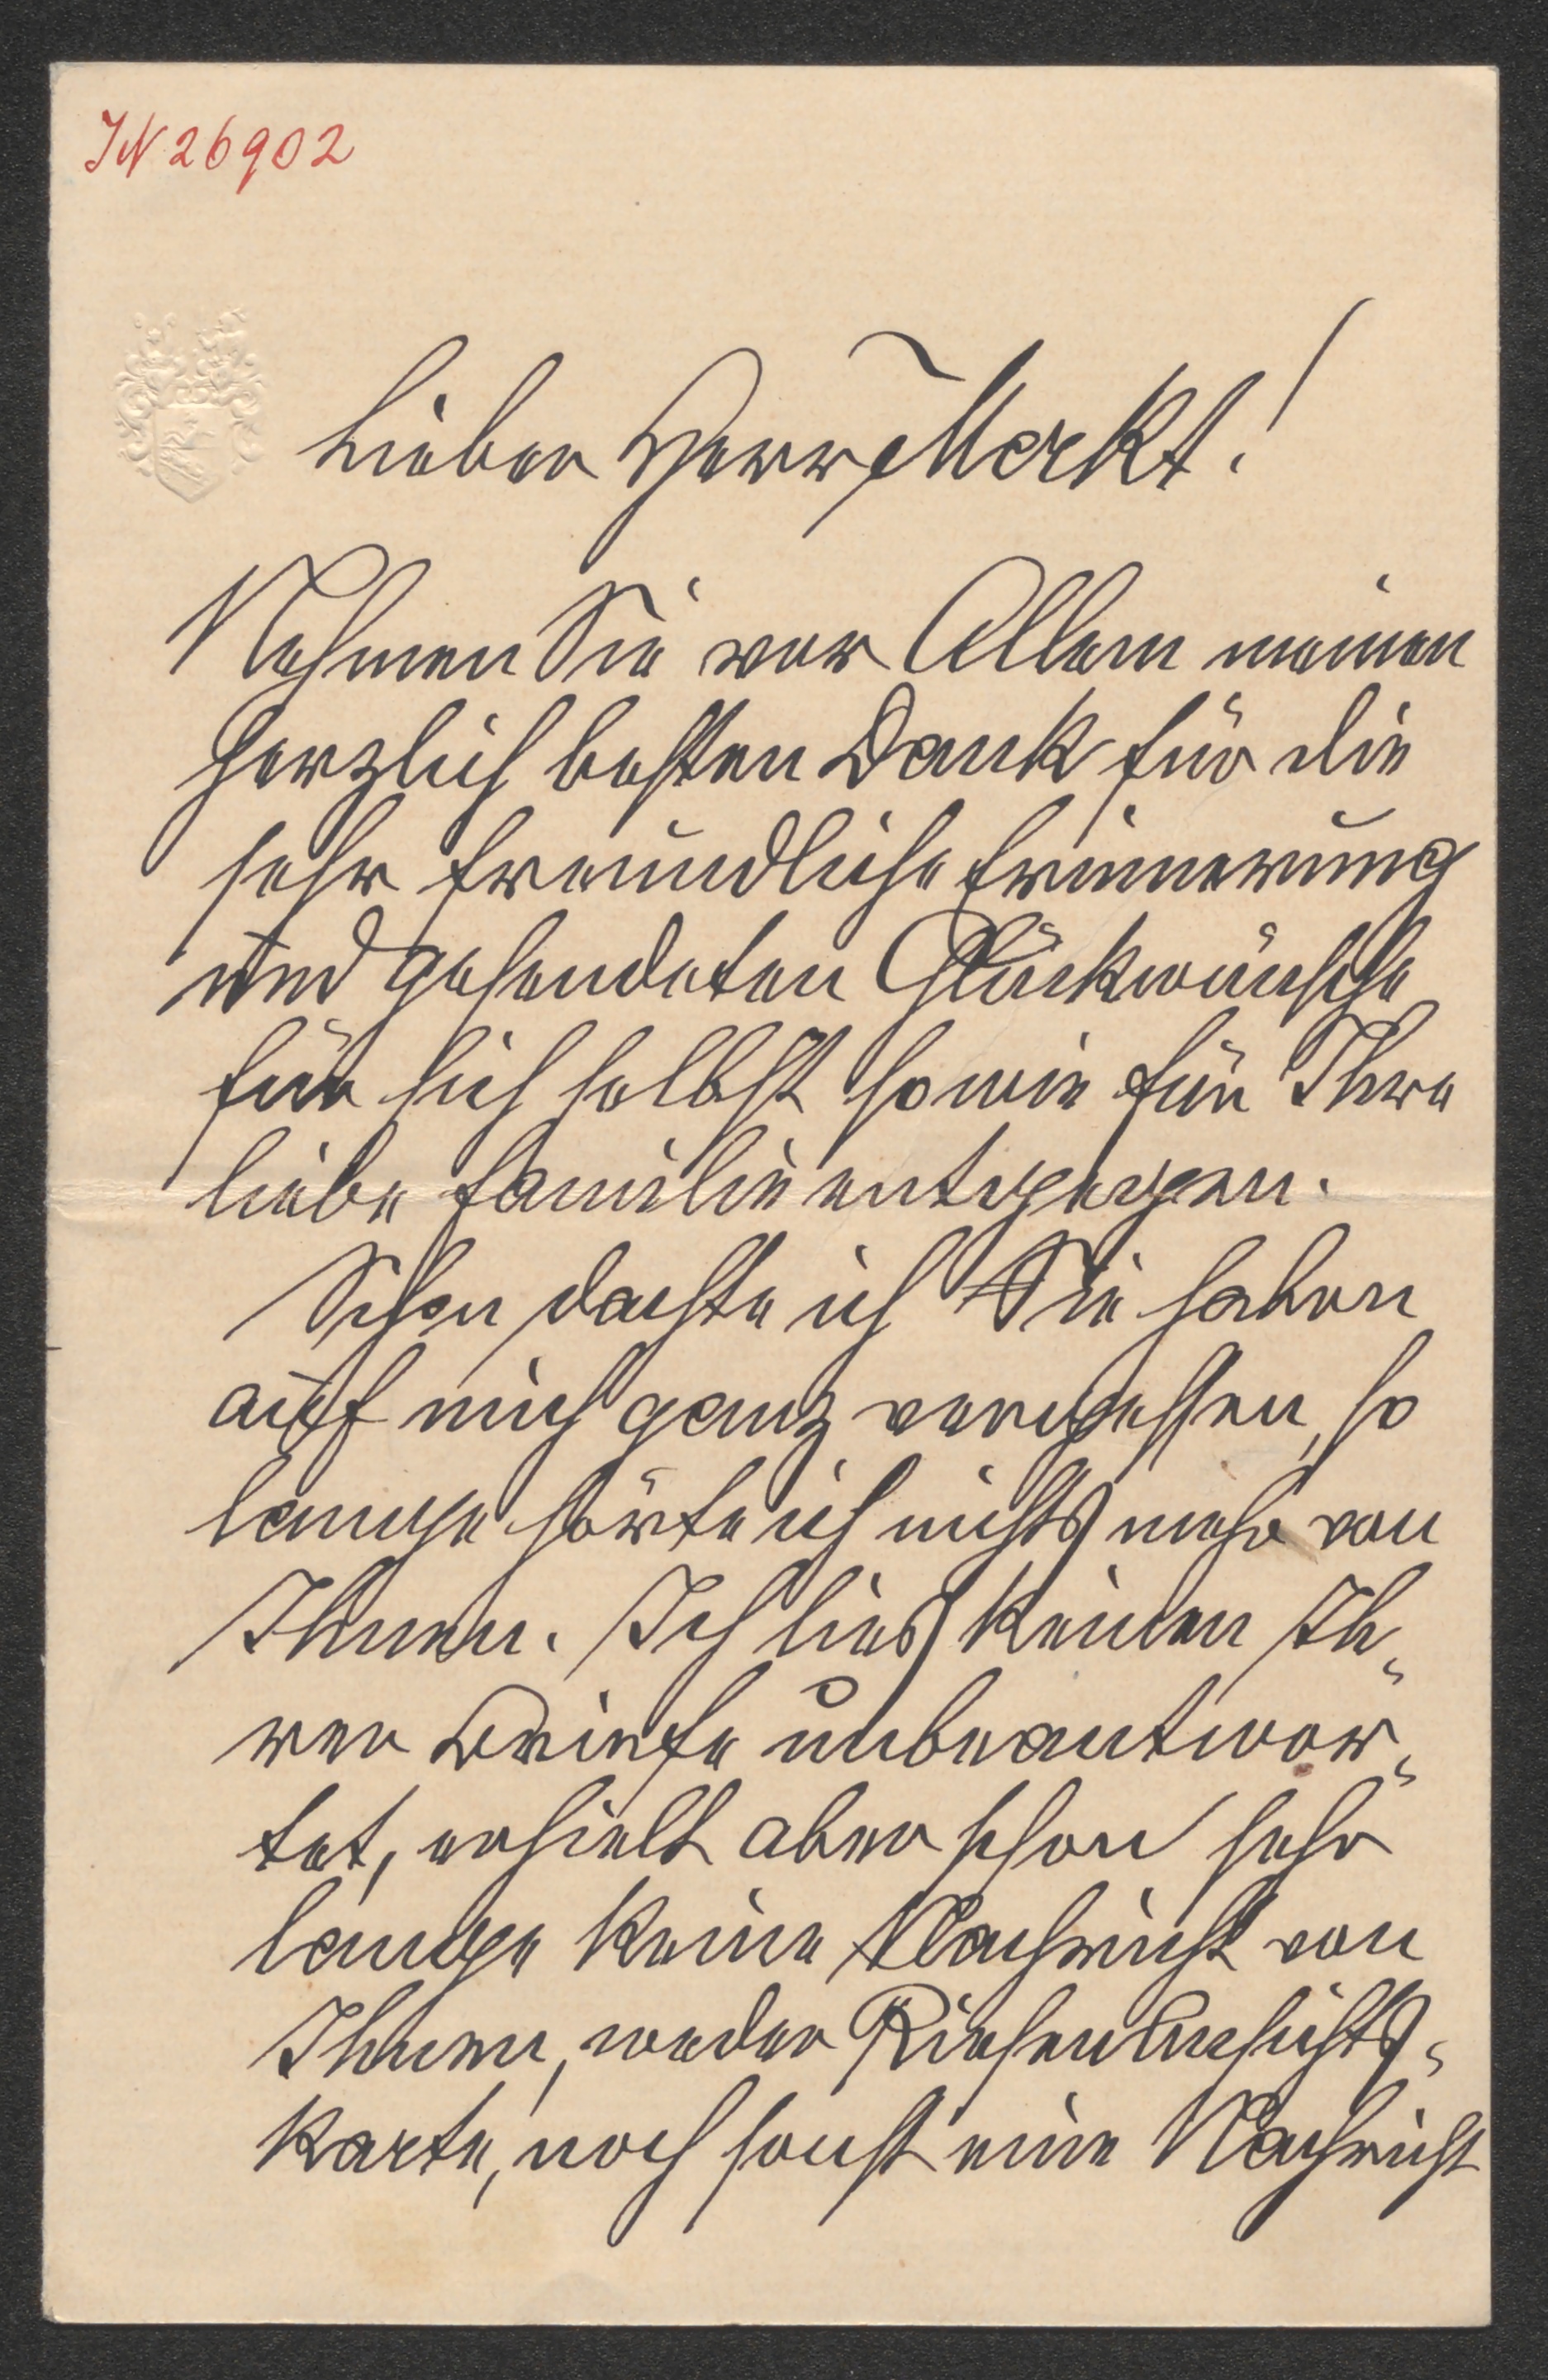 IN 26902
Lieber Herr Merkt!
Nehmen Sie vor Allem meinen
herzlich besten Dank für die
sehr freundliche Erinnerung
und gesendeten Glückwünsche
für sich selbst sowie für Ihre
liebe Familie entgegen.
Schon dachte ich Sie haben
auf mich ganz vergessen, so
lange hörte ich nichts mehr von
Ihnen. Ich lies keinen Ih„
rer Briefe unbeantwor„
tet, erhielt aber schon sehr
lange keine Nachricht von
Ihnen, weder Riesenansichts„
karte, noch sonst eine Nachricht